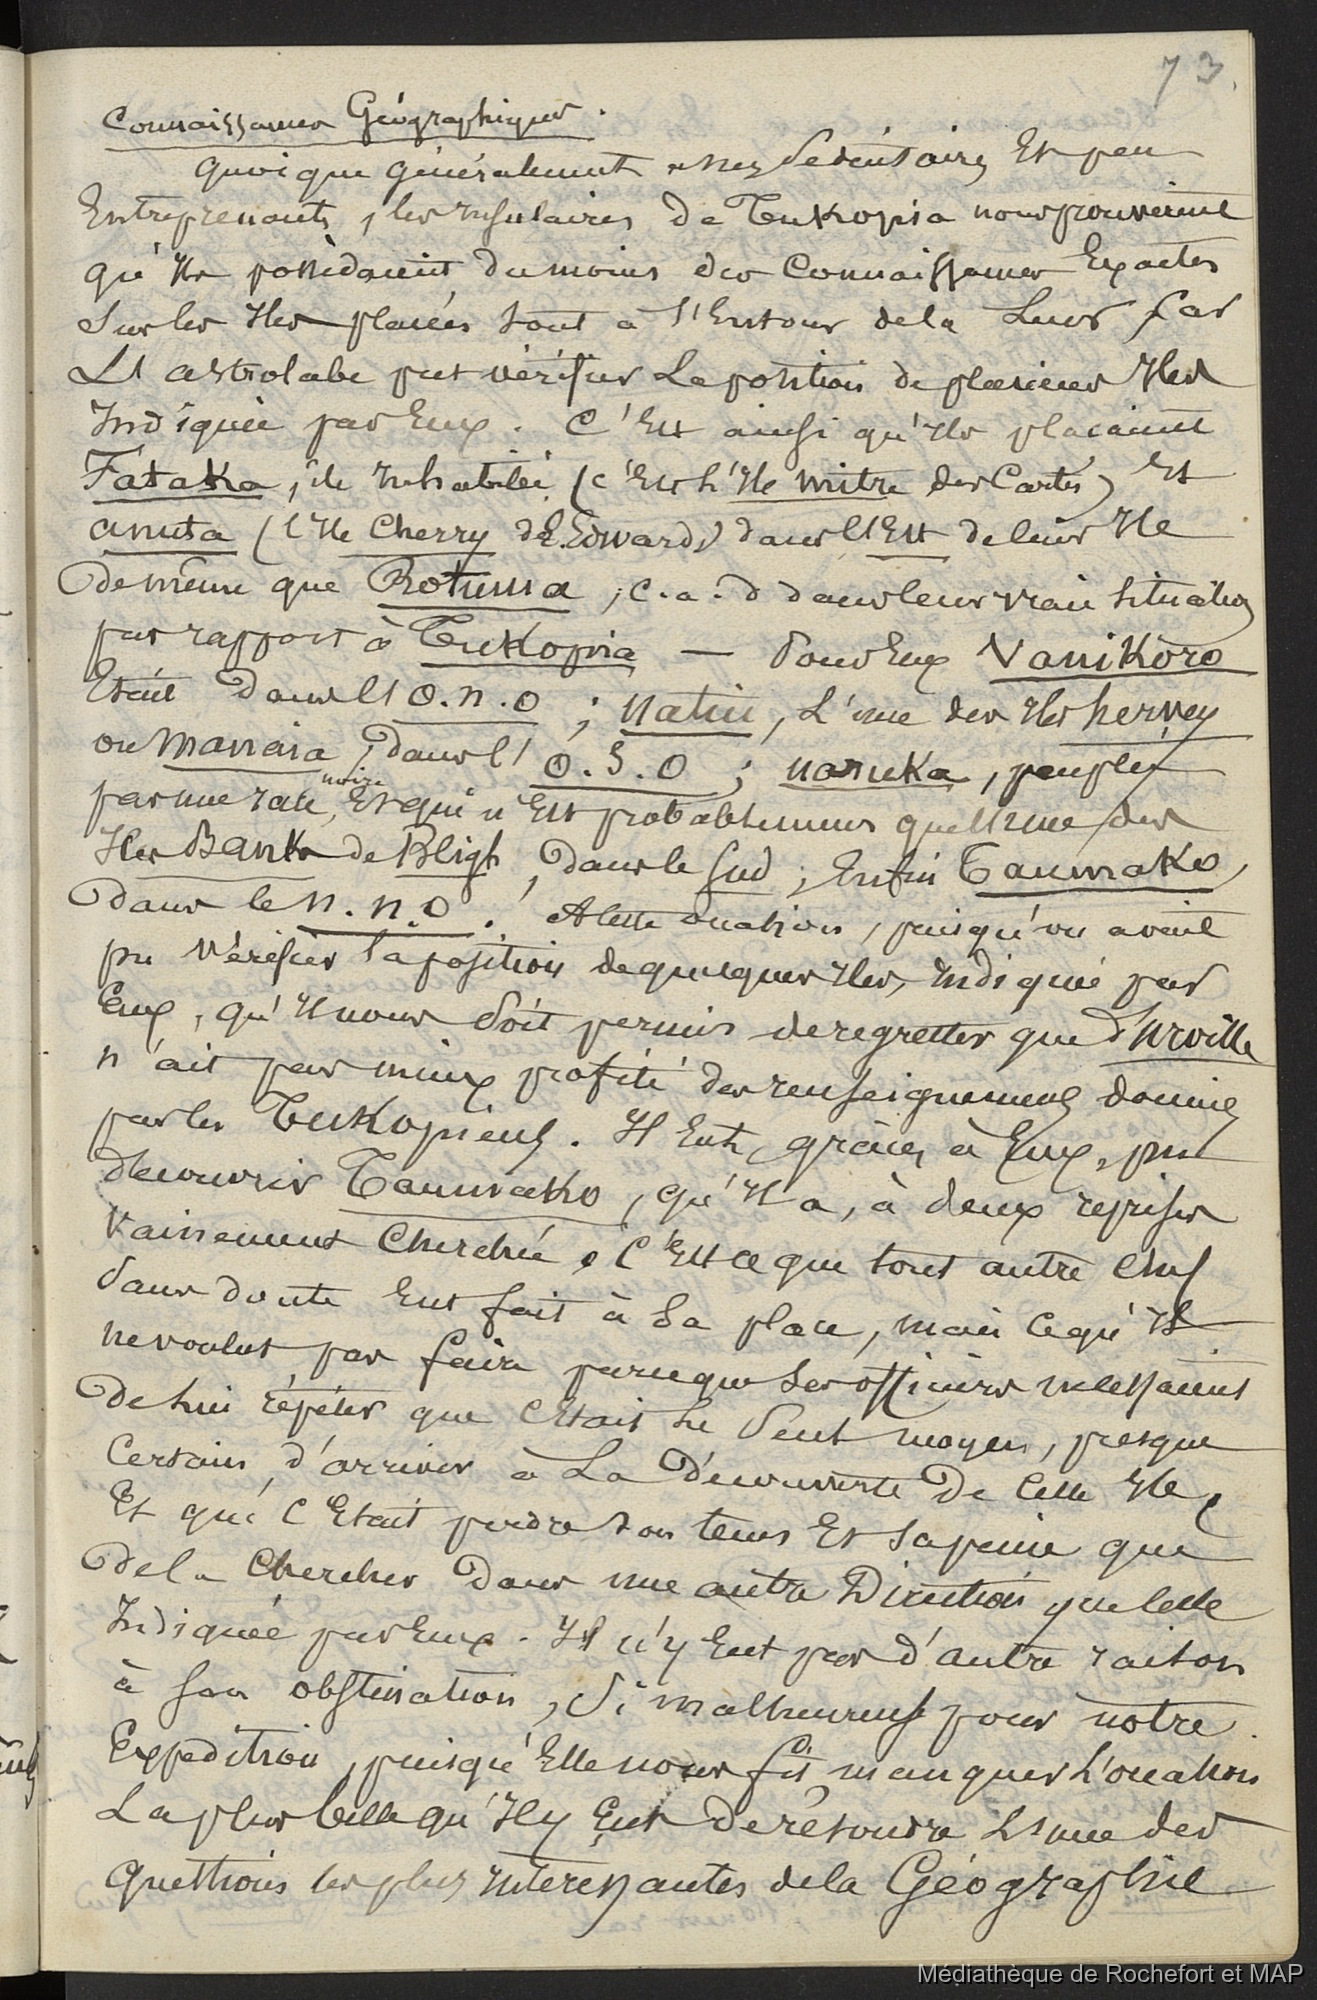 73.
Connaissances Géographiques.
quoique généralement assez sédentaires Et peu
Entreprenants, les Insulaires de Tukopia nous prouvèrent
qu'Ils possédaient du moins des Connaissances Exactes
Sur les Iles placées tout à l'Entour de la Leur car
L'astrolabe put vérifier La position de plusieurs Iles
Indiquées par Eux. C'Est ainsi qu'Ils plaçaient
Fataka, île Inhabitée (c'Est l'Ile Mitre des Cartes) Et
anuta (l'Ile Cherry d'E. Edwards) dans l'Est de leur Ile
De même que Rotuma, c.a.d dans leur vraie Situation
par rapport à Tukopia — Pour Eux Vanikoro
Etait Dans l'O.n.O ; natiu, L'une des Iles hervey
ou Manaia, Dans l'O.S.O ; naruka, peuplée
par une race noire, Et qui n'Est probablement qu'elle une des
Iles Banks de Bligh, Dans le Sud ; Enfin Taumako,
Dans le n.n.O. A cette occasion, puisqu'on avait
pu Vérifier la position de quelques Iles, Indiquées par
Eux, qu'Il nous Soit permis de regretter que d'Urville
n'ait pas mieux profité des renseignements donnés
par les Tukopiens. Il Eut, grâces à Eux, pu
découvrir Taumako, qu'Il a, à deux reprises
Vainement Cherchée, C'Est ce que tout autre Chef
Sans doute Eut fait à Sa place, mais ce qu'Il
ne voulut pas faire parceque Ses officiers ne cessaient
De lui répéter que C'Etait Le Seul moyen, presque
Certain, d'arriver à La Découverte De Cette Ile,
Et que C'Etait perdre Son tems Et Sa peine que
De la Chercher Dans une autre Direction que Celle
Indiquée par Eux. Il n'y Eut pas d'autre raison
à Son obstination, Si malheureuse pour notre
Expédition, puisqu'Elle nous fit manquer L'occasion
La plus belle qu'Il y Eut De résoudre L'une des
Questions les plus Intéressantes de la Géographie
Médiathèque de Rochefort et MAP